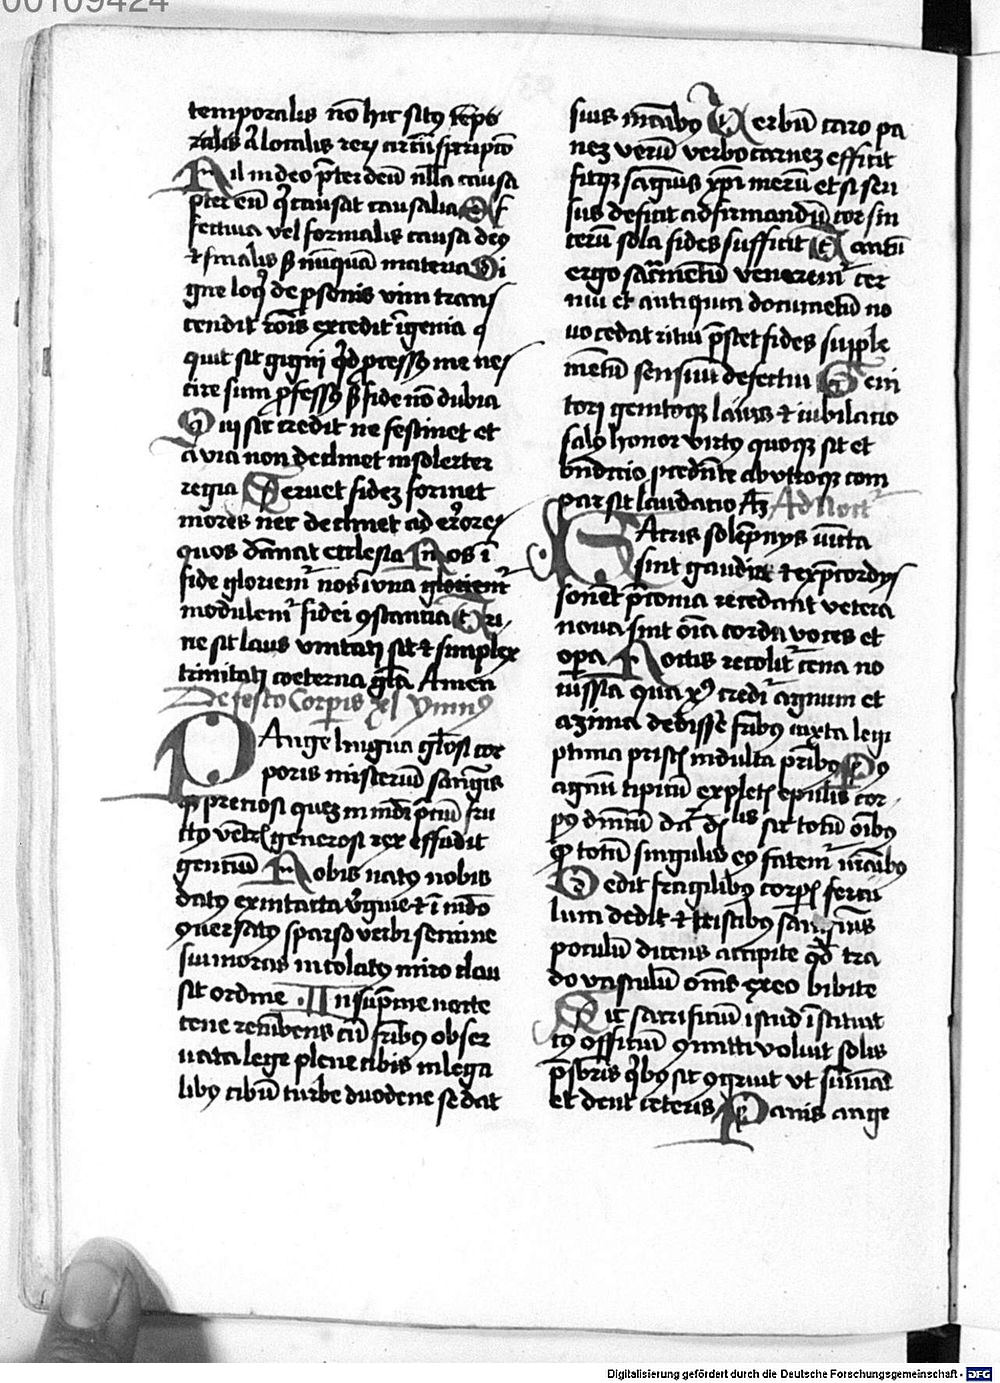 00109424
temporalis nō hic situs tēpo
ralis l̄ localis rerū circūscripcio
Nil in deo p̄ter deū nulla causa
p̄ter eū q̄ causat causalia Ef
fectiua vel formalis causa deꝰ
et finalis s̄ nūquā materia Di
gne loqͥ de ꝑsonis vim trans
cendit rōis excedit īgenia q͛
quit sit gigni q̄d ꝓcessꝰ me nes
cire sum ꝓfessꝰ s̄ fide nō dubia
Qui sic credit ne festinet et
a via non declinet insolerter
regia Seruet fidez formet
mores nec declinet ad erores
quos dānat ecclesia Nos ī
fide gloriemͬ nos ī vna
modulemͬ fidei ꝯstancia Tri
ne sit laus vnitati sit et simplex
trinitati coeterna glīa Amen
De festo Corꝑis xͥ ymnꝰ
PAnge lingua glōsi cor
poris misteriū sangͥs
qꝫ preciosi quez in mūdi p̄ciū fru
ctꝰ vētrꝭ generosi rex effudit
genciū Nobis natꝰ nobis
datꝰ ex intacta v̄gine et ī mūdo
ꝯuersatꝰ sparso verbi semine
sui moras incolatꝰ miro clau
sit ordine In sup̄me nocte
cene recūbens cū fr̄ibꝰ obser
uata lege plene cibis in lega
libꝰ cibū turbe duodene se dat
suis mānibꝰ Verbū caro pa
nez verū verbo carnez efficit
fitqꝫ sāguis xp̄i merū et si sen
sus deficit ad firmandū cor sin
cerū sola fides sufficit Tantū
ergo sac̄mētū veneremͬ cer
nui et antiquū documētū no
uo cedat ritui p̄stet fides supple
mētū sensuū defectui Geni
tori genitoqꝫ laus et iubilacio
salꝰ honor virtꝰ quoqꝫ sit et
bn̄dictio procedn̄te ab vtroqꝫ com
par sit laudacio Am̄ Ad Noctͬ
SAcris solēpnijs iūcta
sint gaudia et ex p̄cordijs
sonēt p̄conia recedant vetera
noua sint oīa corda voces et
oꝑa Noctis recolitͬ cena no
uissīa qua xꝰ creditͬ agnum et
azima dedisse fr̄ibꝰ iuxta legi
ptima priscꝭ indulta pr̄ibꝰ Po
agnū tipicū expletꝭ epulis cor
pꝰ dn̄icū datū discīlis sic totū oībꝰ
qꝫ totū singulis eꝰ fatemͬ mānibꝰ
Dedit fragilibꝰ corꝑꝭ fercu
lum dedit et tristibꝰ sanguīs
poculū dicens accipite q̄d tra
do vasculū oēs ex eo bibite
Sic sacrificiū istud īstituit
cꝰ officiū ꝯmitti voluit solis
p̄sbr̄is qͥbꝰ sic ꝯgruit vt sumāt
et dent ceteris Panis ange
Digitalisierung gefördert durch die Deutsche Forschungsgemeinschaft - DFG